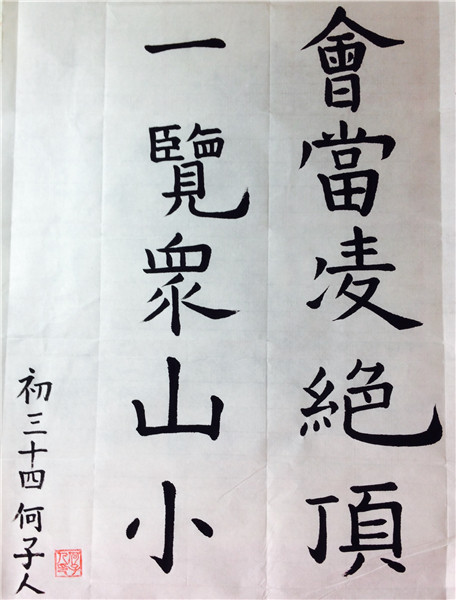 會當凌絕頂
一覽衆山小
初三十四何子人